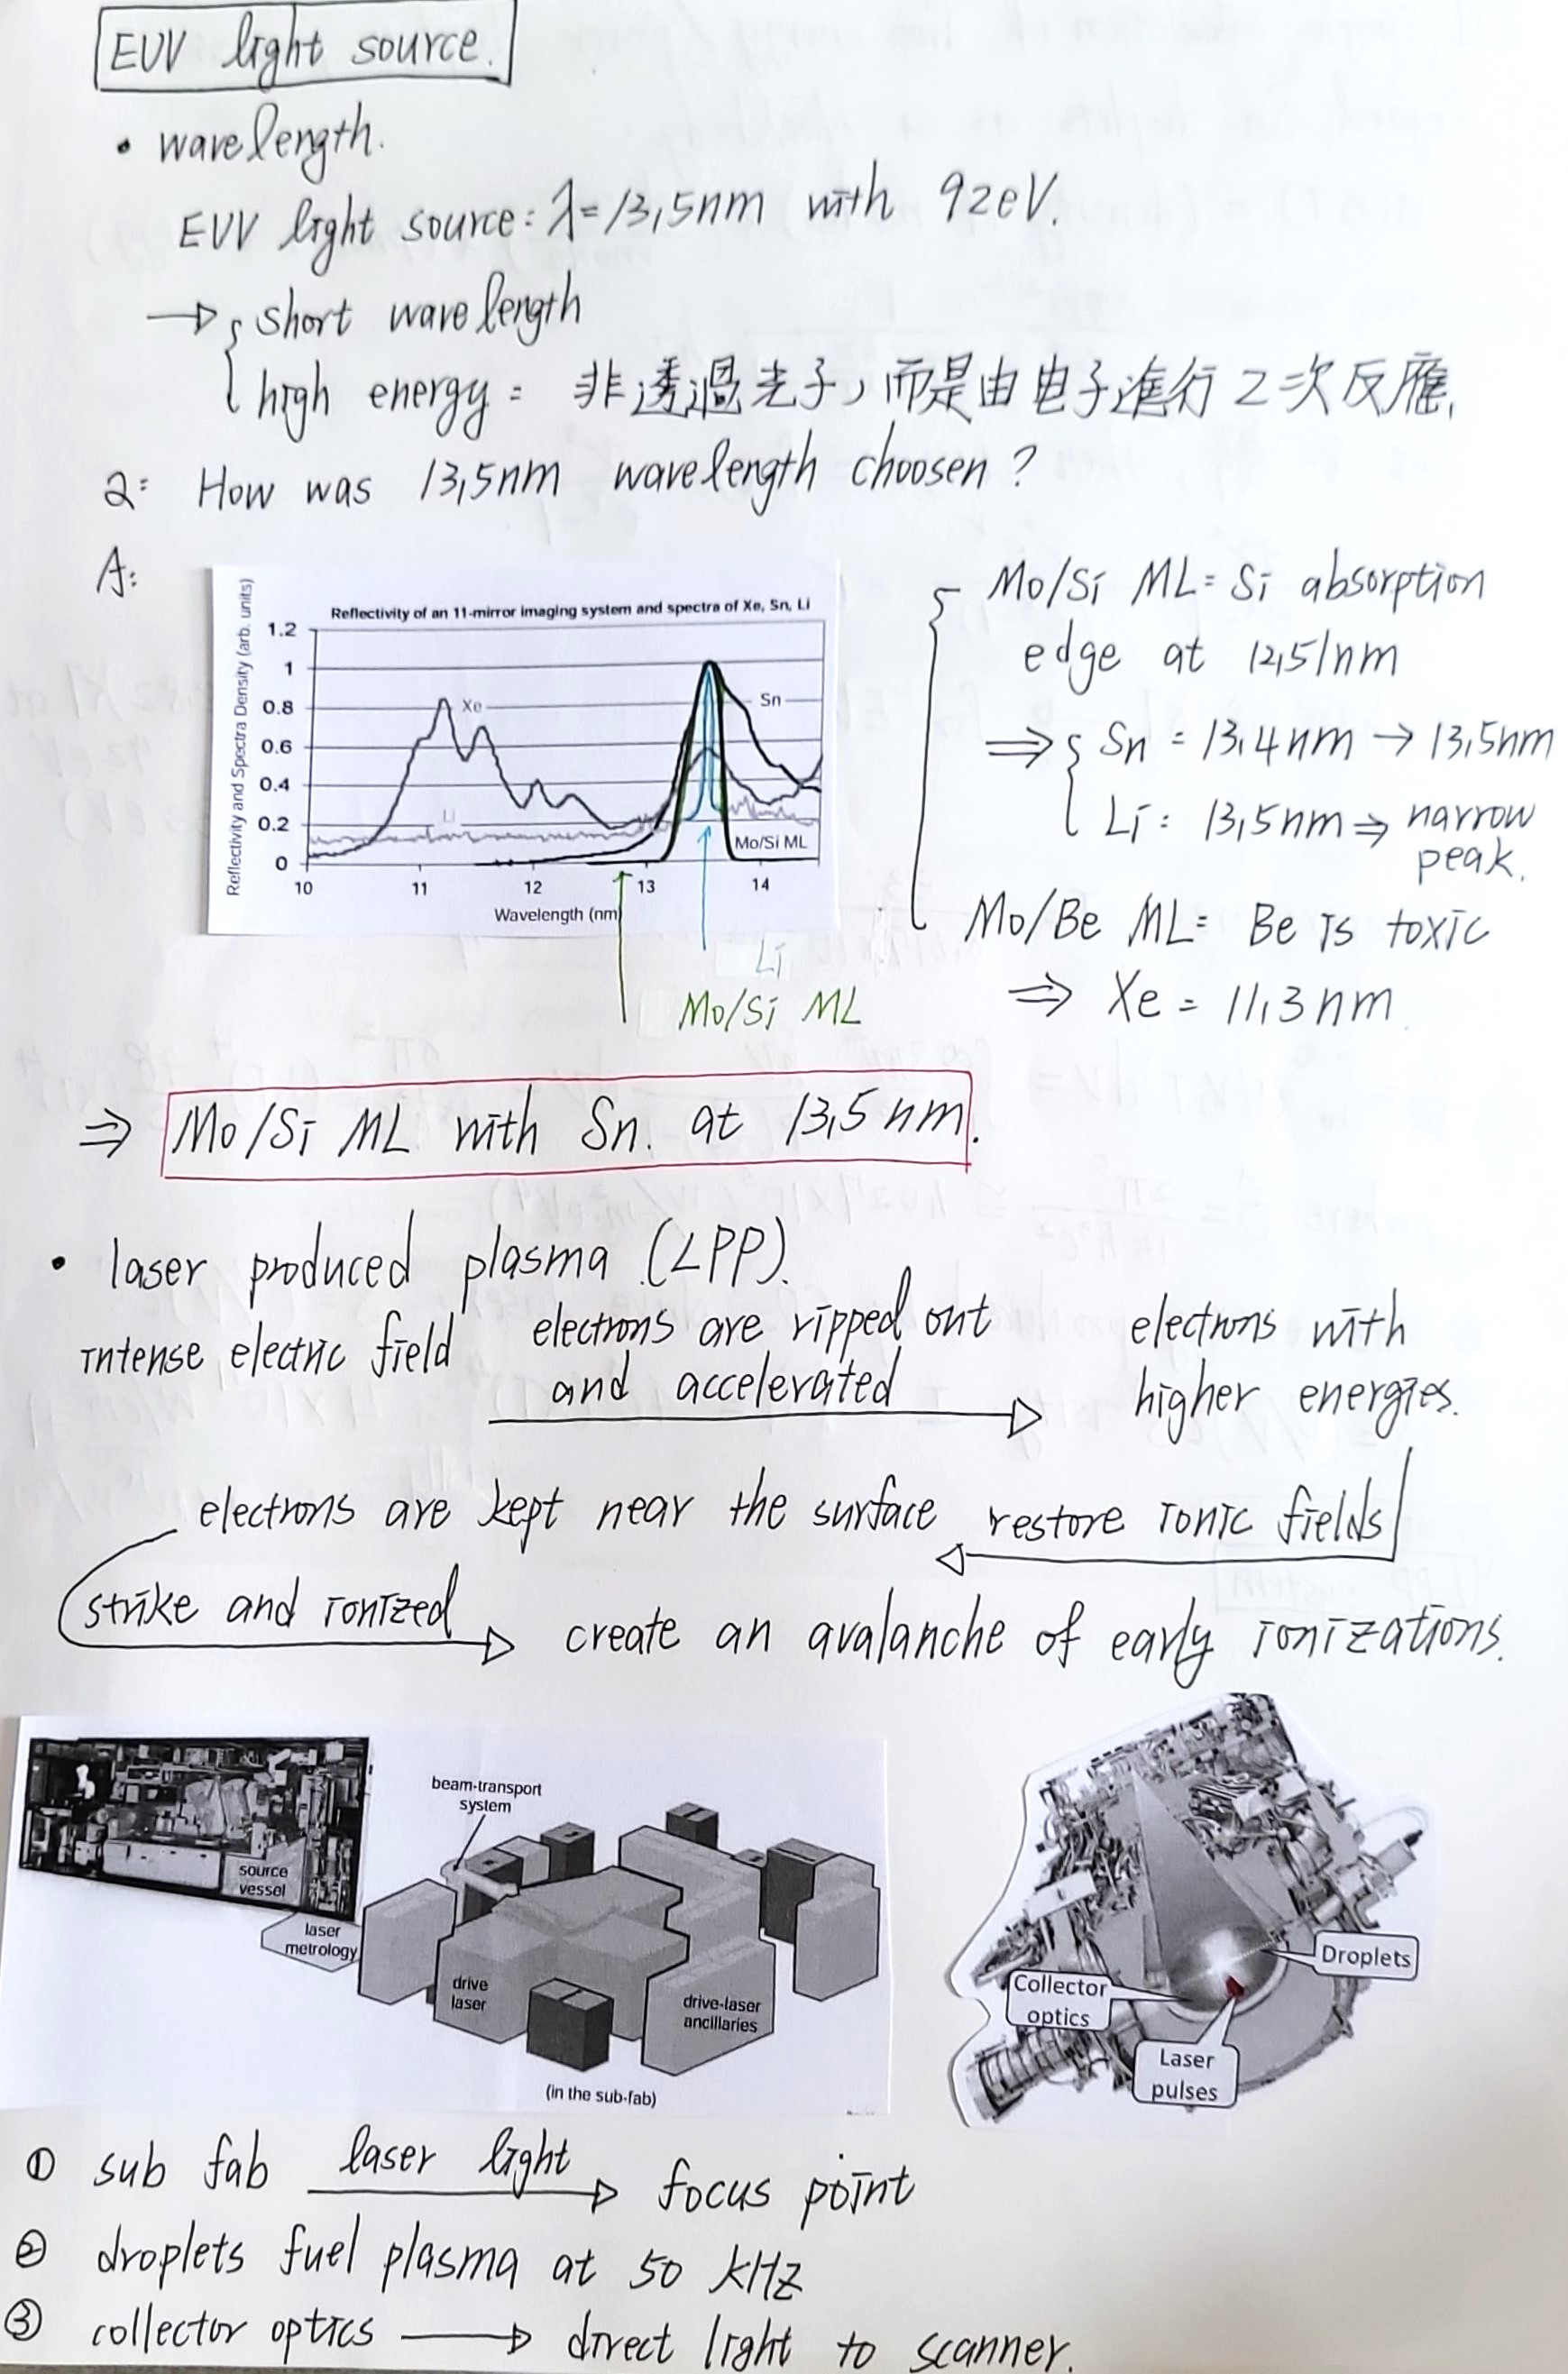 EUV light source.
• wavelength.
EUV light source: λ=13,5nm with 92eV.
→ { short wavelength
high energy: 非透過光子,而是由电子進行2次反應.
Q: How was 13,5nm wavelength choosen?
A:
Reflectivity of an 11-mirror imaging system and spectra of Xe, Sn, Li
Reflectivity and Spectra Density (arb. units)
1.2
1
0.8
0.6
0.4
0.2
0
Xe
Sn
Li
Mo/Si ML
10 11 12 13 14
Wavelength (nm)
Li
Mo/Si ML
Mo/Si ML: Si absorption
edge at 12,51nm
⇒ { Sn: 13,4nm → 13,5nm
Li: 13,5nm ⇒ narrow
peak.
Mo/Be ML: Be is toxic
⇒ Xe = 11,3nm.
⇒ Mo/Si ML with Sn. at 13,5nm.
• laser produced plasma (LPP).
intense electric field electrons are ripped out
and accelerated
electrons with
higher energies.
restore ionic fields
electrons are kept near the surface
strike and ionized
create an avalanche of early ionizations.
source
vessel
laser
metrology
beam-transport
system
drive
laser
drive-laser
ancillaries
(in the sub-fab)
Droplets
Collector
optics
Laser
pulses
① sub fab laser light → focus point
② droplets fuel plasma at 50 kHz
③ collector optics → direct light to scanner.